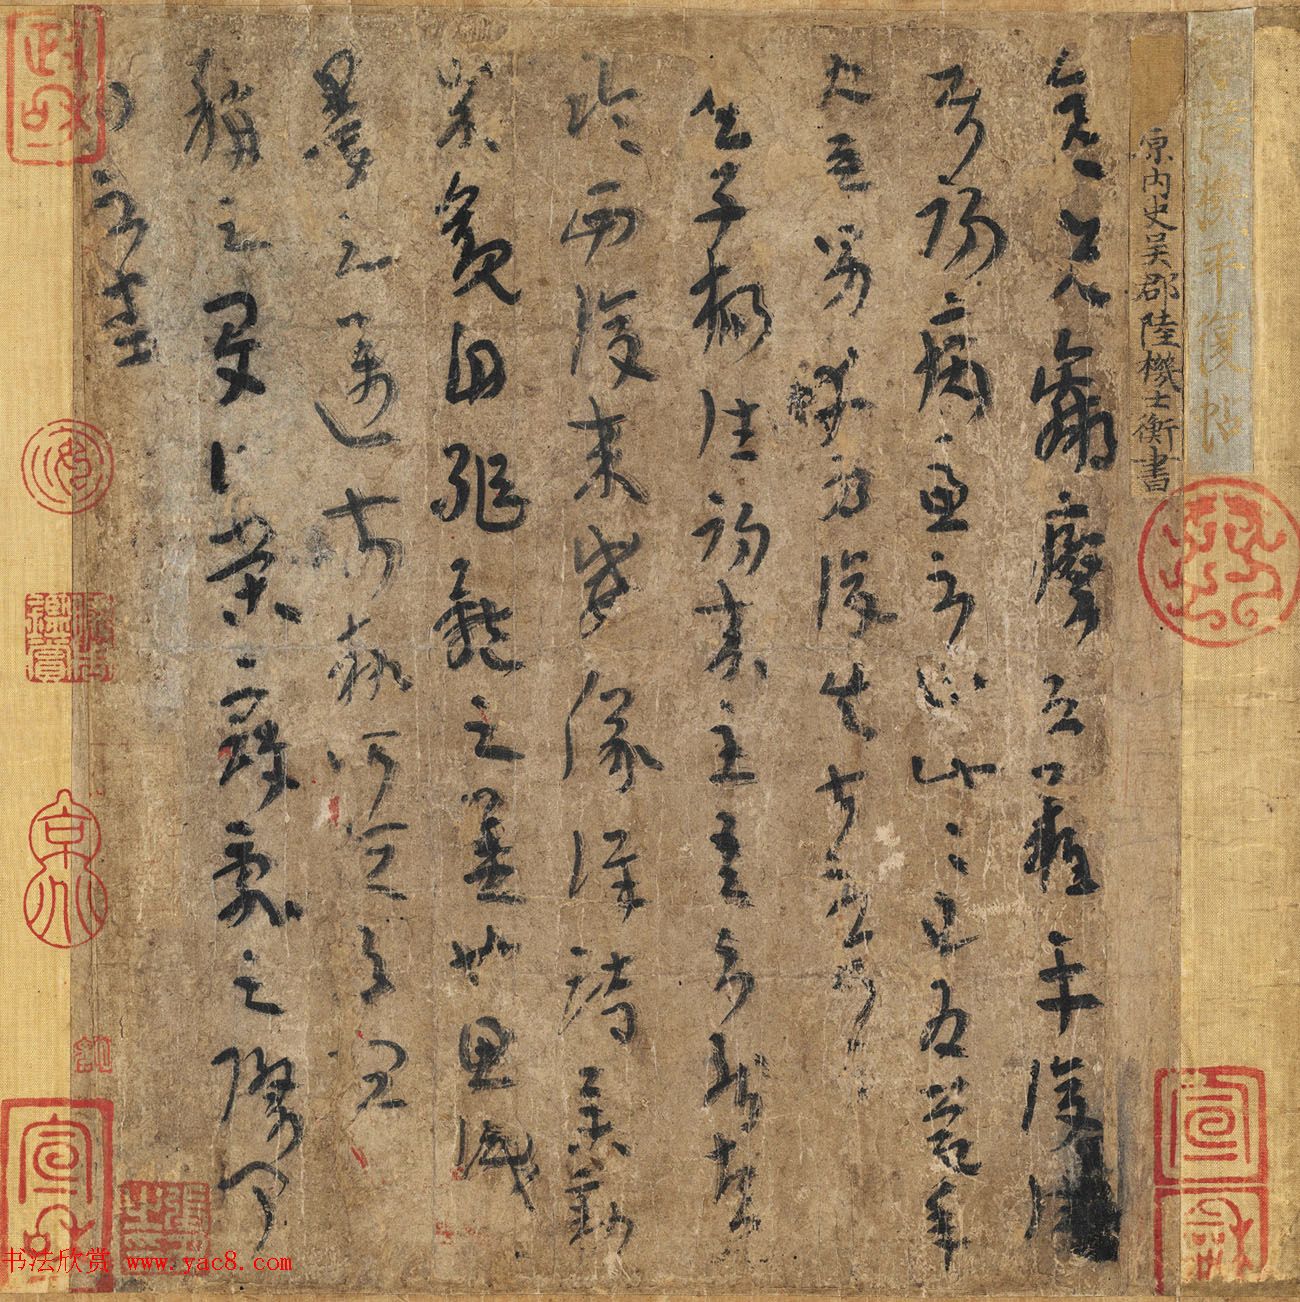 晉陸機平復帖
原內史吳郡陸機士衡書
彥先羸瘵恐難平復往屬
初病慮不止此此已為慶承
使唯男幸為復失前憂耳
吳子楊往初來主吾不能盡
臨西復來威儀詳跱舉動
成觀自軀體之美也思識
量之邁前執所恒有宜
稱之夏伯榮寇亂之際聞
問不悉
政和
宣和
宣和
书法欣赏 www.yac8.com